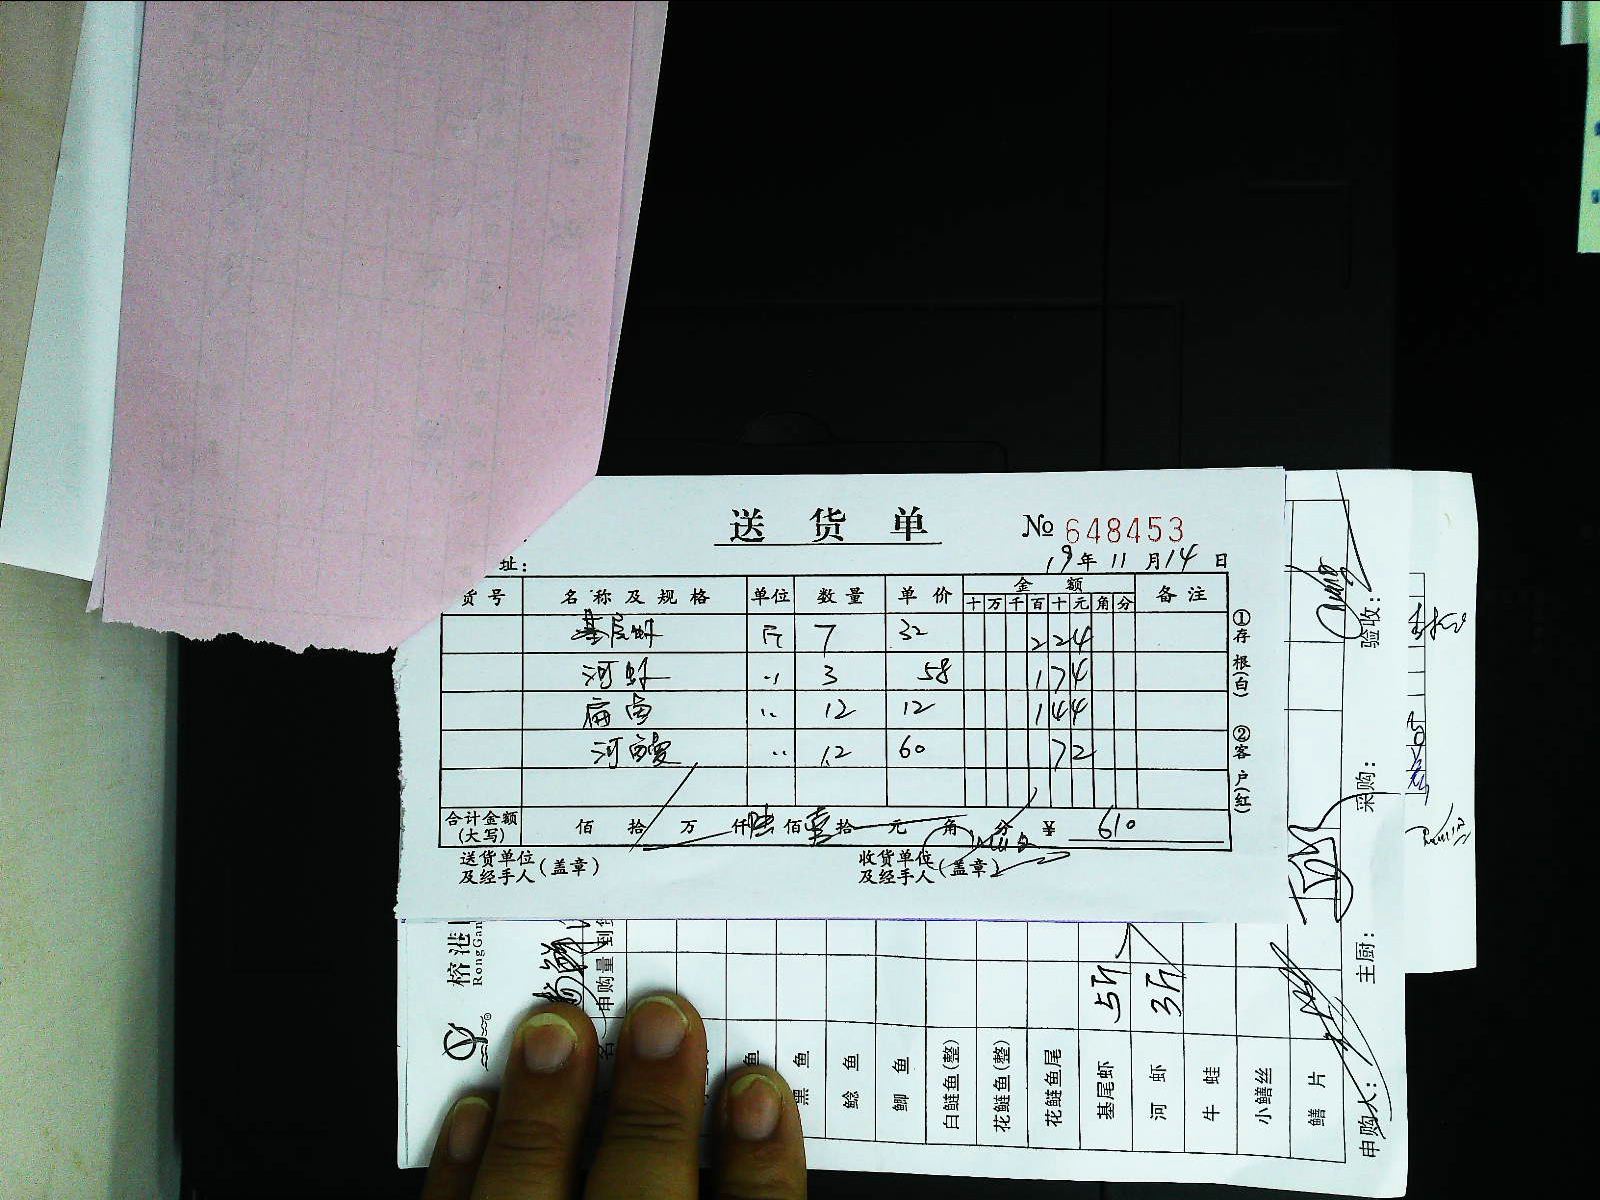 送 货 单
№ 648453
址：
19年 11 月 14 日
货号 名称及规格 单位 数量 单价 金额 备注
十 万 千 百 十 元 角 分
基尾虾 斤 7 32 224
河虾 〃 3 58 174
扁鱼 〃 12 12 144
河鳗 〃 1.2 60 72
合计金额
(大写)
佰 拾 万 仟 陆 佰 壹 拾 元 角 分 ¥ 610
送货单位
及经手人(盖章)
收货单位
及经手人(盖章)
①存根(白)
②客户(红)
榕港
RongGan
申购量 到
名
鱼
黑 鱼
鲶 鱼
鲫 鱼
白鲢鱼(整)
花鲢鱼(整)
花鲢鱼尾
基尾虾 5斤
河 虾 3斤
牛 蛙
小鳝丝
鳝 片
申购人：
主厨：
采购：
验收：